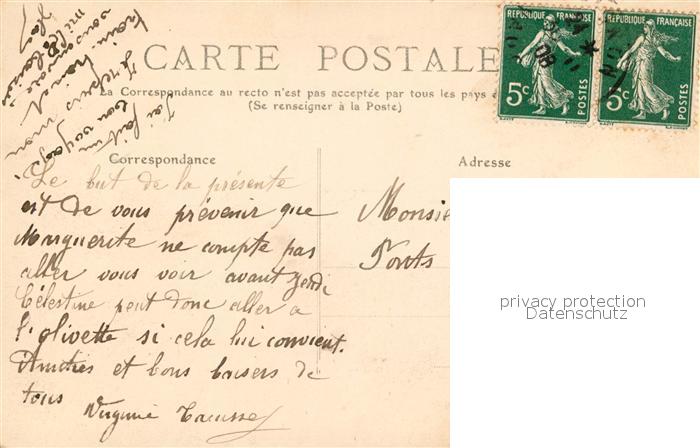 CARTE POSTALE
La Correspondance au recto n'est pas acceptée par tous les pays
(Se renseigner à la Poste)
RÉPUBLIQUE FRANÇAISE
5c
POSTES
RÉPUBLIQUE FRANÇAISE
5c
POSTES
08
J'ai fait un
bon voyage
Correspondance
Adresse
Le but de la présente
est de vous prévenir que
Marguerite ne compte pas
aller vous voir avant jeudi
Célestine peut donc aller a
l'olivette si cela lui convient.
Amitiés et bons baisers de
tous
Virginie
Monsie
Ponts
privacy protection
Datenschutz